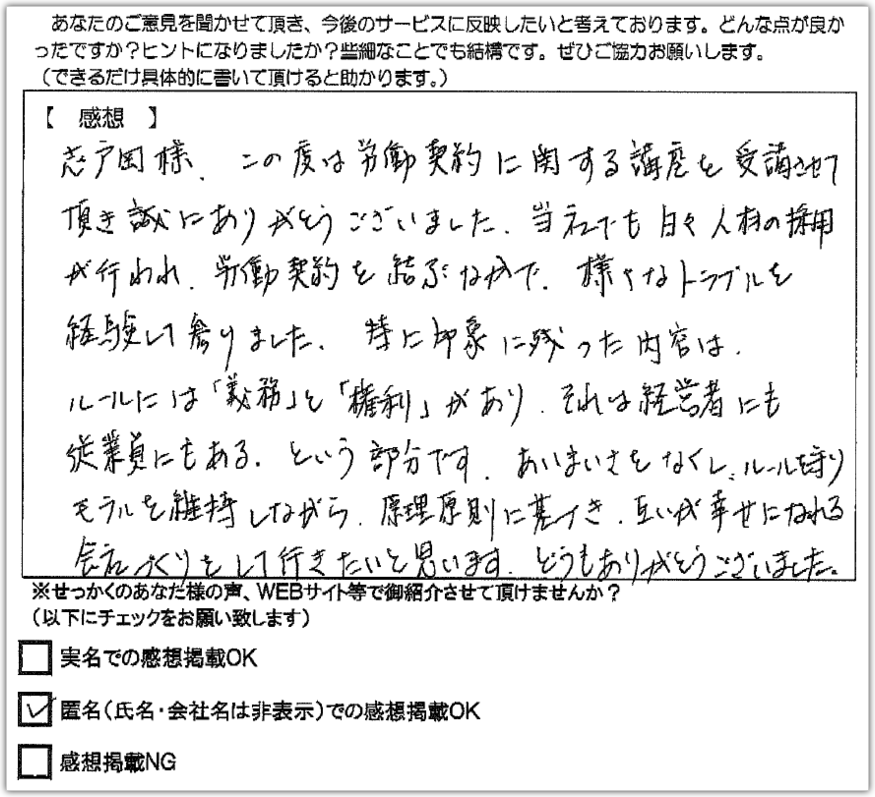 あなたのご意見を聞かせて頂き、今後のサービスに反映したいと考えております。どんな点が良か
ったですか？ヒントになりましたか？些細なことでも結構です。ぜひご協力お願いします。
（できるだけ具体的に書いて頂けると助かります。）
【 感想 】
志戸岡様、この度は労働契約に関する講座を受講させて
頂き誠にありがとうございました。当社でも日々人材の採用
が行われ、労働契約を結ぶなかで、様々なトラブルを
経験して参りました。特に印象に残った内容は、
ルールには「義務」と「権利」があり、それは経営者にも
従業員にもある、という部分です。あいまいさをなくし、ルールを守り
モラルを維持しながら、原理原則に基づき、互いが幸せになれる
会社づくりをして行きたいと思います。どうもありがとうございました。
※せっかくのあなた様の声、WEBサイト等で御紹介させて頂けませんか？
（以下にチェックをお願い致します）
実名での感想掲載OK
匿名（氏名・会社名は非表示）での感想掲載OK
感想掲載NG